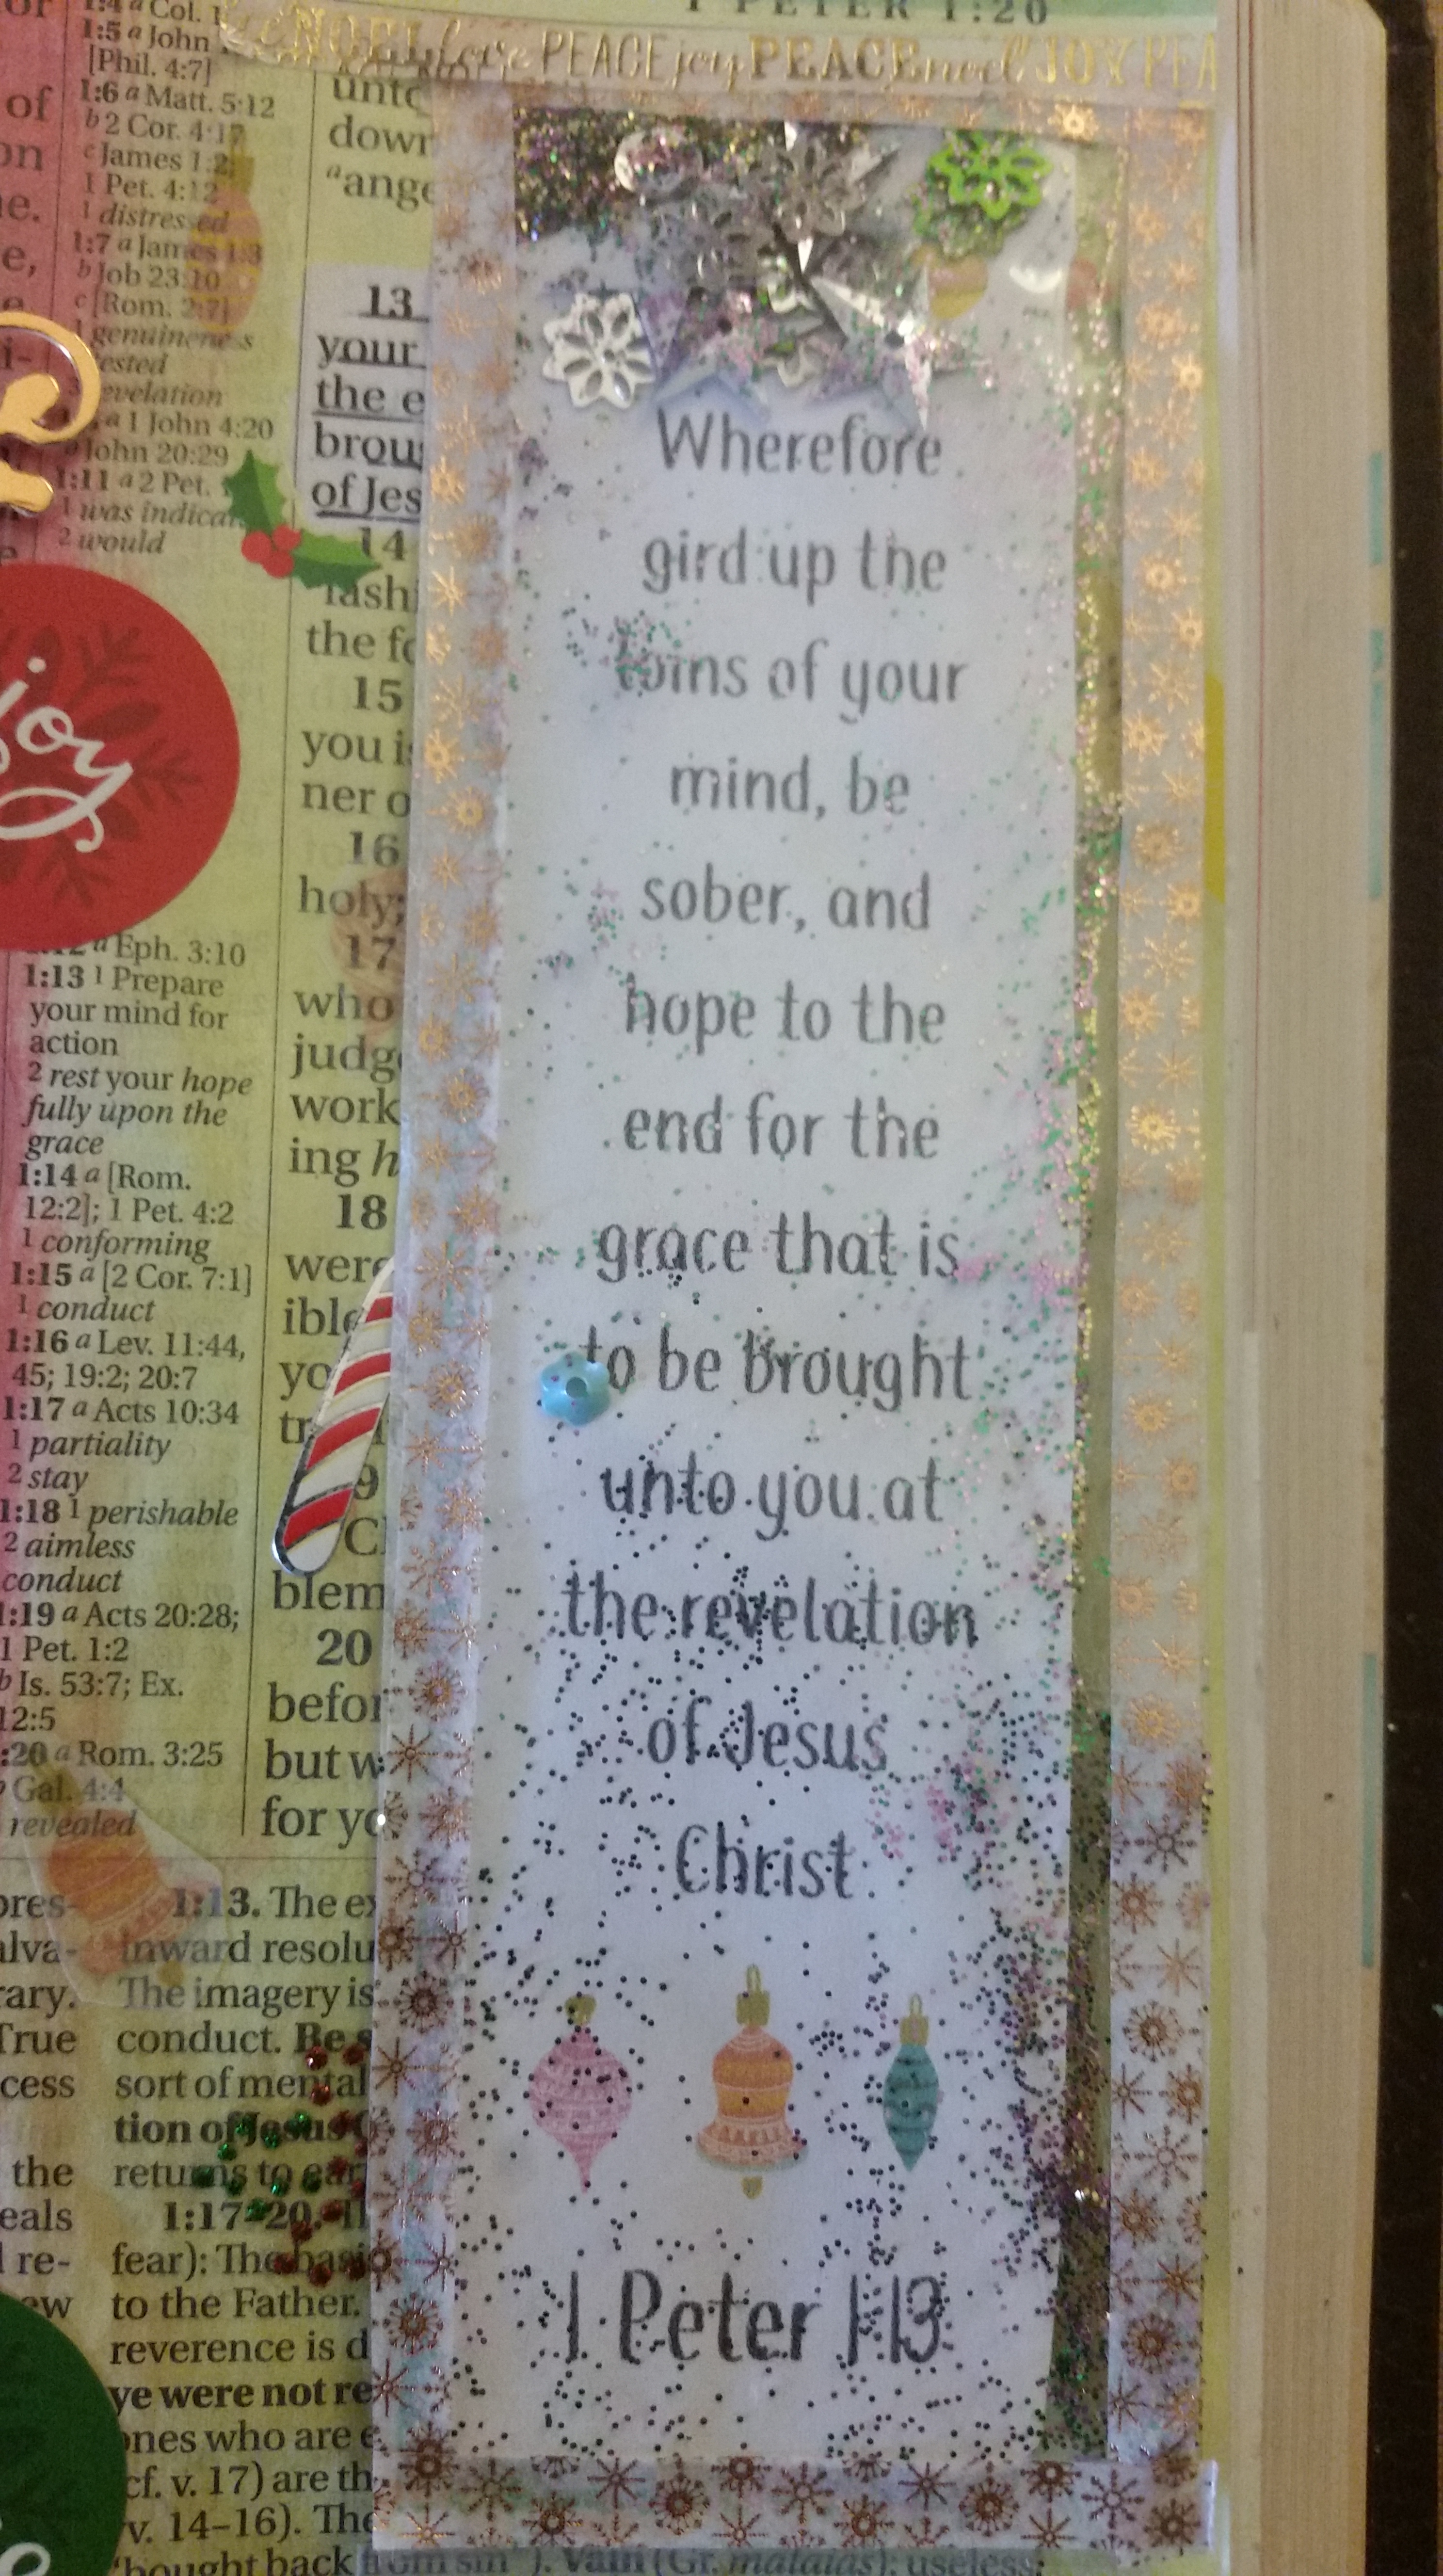 1 PETER 1:20
NOEL love PEACE joy PEACE noel JOY PEA
Wherefore
gird up the
loins of your
mind, be
sober, and
hope to the
end for the
grace that is
to be brought
unto you at
the revelation
of Jesus
Christ
1 Peter 1:13
1:4 a Col. 1
1:5 a John
[Phil. 4:7]
1:6 a Matt. 5:12
b 2 Cor. 4:17
c James 1:2;
1 Pet. 4:12
1 distressed
1:7 a James 1:3
b Job 23:10
c [Rom. 2:7]
1 genuineness
a 1 John 4:20
John 20:29
1:11 a 2 Pet.
1 was
2 would
joy
a Eph. 3:10
1:13 1 Prepare
your mind for
action
2 rest your hope
fully upon the
grace
1:14 a [Rom.
12:2]; 1 Pet. 4:2
1 conforming
1:15 a [2 Cor. 7:1]
1 conduct
1:16 a Lev. 11:44,
45; 19:2; 20:7
1:17 a Acts 10:34
1 partiality
2 stay
1:18 1 perishable
2 aimless
conduct
1:19 a Acts 20:28;
1 Pet. 1:2
b Is. 53:7; Ex.
12:5
:20 a Rom. 3:25
Gal. 4:4
revealed
unto
down
a ange
13
your
the e
brou
of Jes
14
fash
the fo
15
you i
ner o
16
holy;
17
who
judg
work
ing h
18
were
ible
yo
tr
9
C
blem
20
befor
but w
for yo
1:13. The ex
inward resolu
The imagery is
conduct. Be s
sort of mental
tion of Jesus C
returns to ear
1:17–20.
fear): The basi
to the Father.
reverence is d
ye were not re
ones who are e
cf. v. 17) are th
vv. 14–16). The
'bought back from sin'). Vain (Gr. mataias): useless,